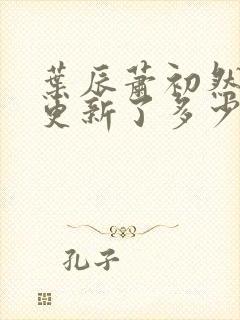 葉辰蕭初然
更新了多少
孔子